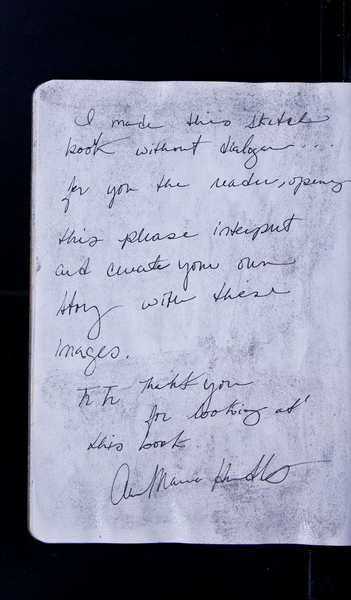 I made this sketch
book without dialogue....
for you the reader, opening
this please interput
and create your own
story with these
images.
thank you
for looking at
this book
Ann Marie